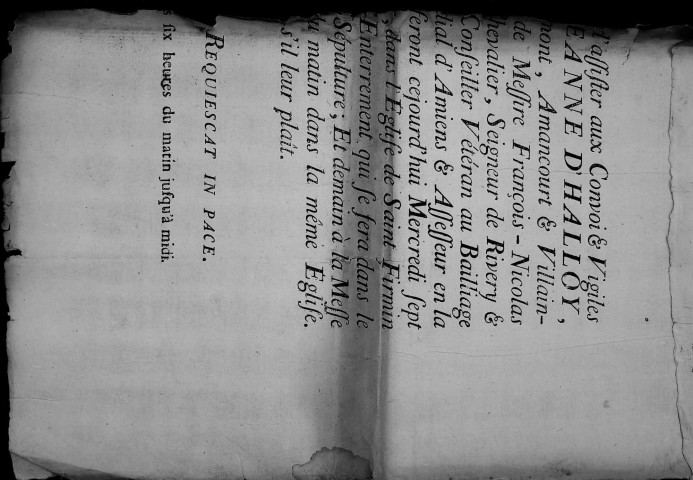 d'aſſiſter aux Convoi & Vigiles
EANNE D'HALLOY,
nont, Amancourt & Villain-
de Meſſire François-Nicolas
hevalier, Seigneur de Rivery &
Conſeiller Vétéran au Bailliage
dial d'Amiens & Aſſeſſeur en la
feront cejourd'hui Mercredi ſept
, dans l'Egliſe de Saint Firmin
Enterrement qui ſe fera dans le
Sépulture; Et demain à la Meſſe
du matin dans la même Egliſe.
s'il leur plaît.
REQUIESCAT IN PACE.
s ſix heures du matin juſqu'à midi.